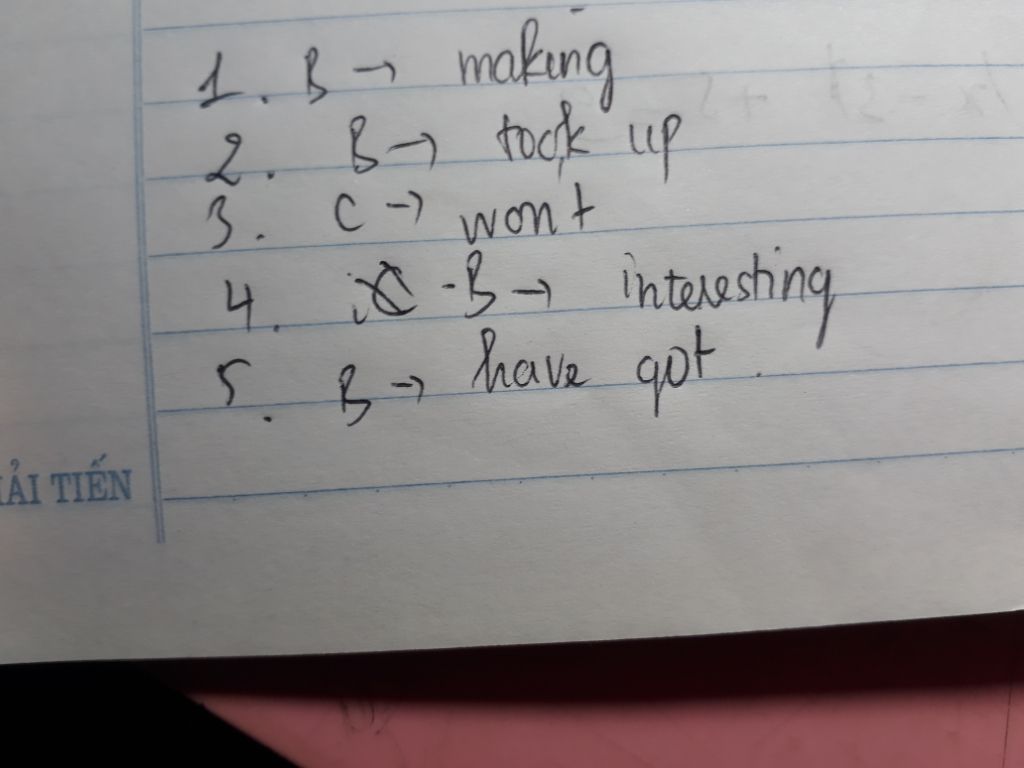 1. B → making
2. B → took up
3. C → wont
4. B → interesting
5. B → have got.
ẢI TIẾN